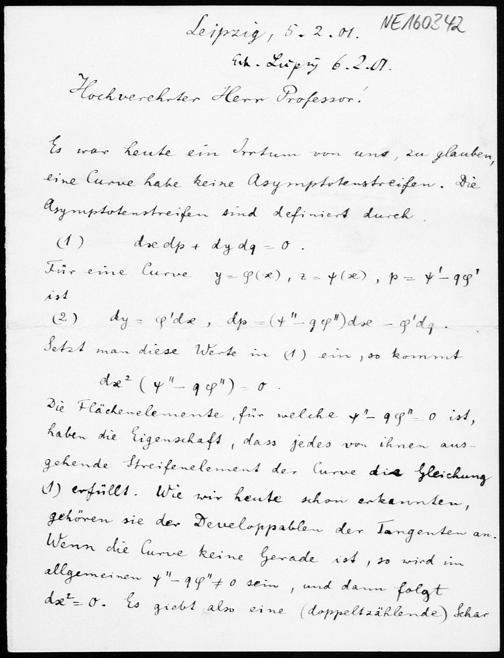 Leipzig, 5.2.01.
NE160342
Erh. Leipzig 6.2.01.
Hochverehrter Herr Professor!
Es war heute ein Irrtum von uns, zu glauben,
eine Curve habe keine Asymptotenstreifen. Die
Asymptotenstreifen sind definiert durch
(1) dxdp + dydq = 0.
Für eine Curve y = φ(x), z = ψ(x), p = ψ' - qφ'
ist
(2) dy = φ'dx, dp = (ψ'' - qφ'')dx - φ'dq.
Setzt man diese Werte in (1) ein, so kommt
dx² (ψ'' - qφ'') = 0.
Die Flächenelemente, für welche ψ'' - qφ'' = 0 ist,
haben die Eigenschaft, dass jedes von ihnen aus-
gehende Streifenelement der Curve die Gleichung
(1) erfüllt. Wie wir heute schon erkannten,
gehören sie der Developpablen der Tangenten an.
Wenn die Curve keine Gerade ist, so wird im
allgemeinen ψ'' - qφ'' ≠ 0 sein, und dann folgt
dx² = 0. Es giebt also eine (doppeltzählende) Schar